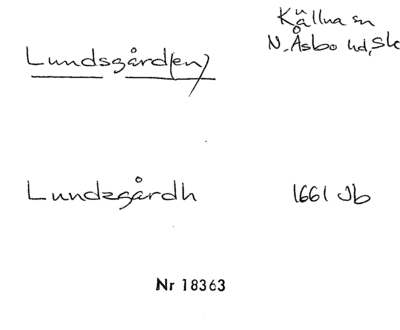 Källna sn
N. Åsbo hd, Sk
Lundsgård(en)
Lundzgårdh 1661 Jb
Nr 18363